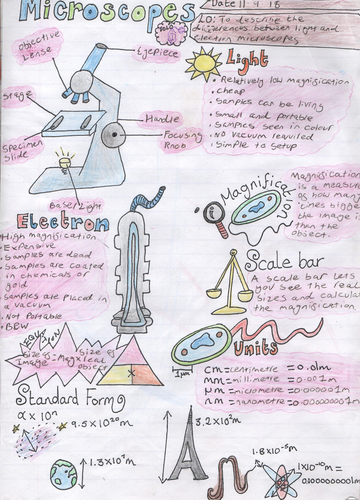 Microscopes
Date 11.9.18
LO: To describe the
differences between light and
electron microscopes
Objective
Lense
Eyepiece
Stage
Handle
Focusing
Knob
Specimen
Slide
Base Light
Light
• Relatively low magnification
• cheap
• Samples can be living
• Small and portable
• Samples seen in colour
• No vacuum required
• Simple to setup
Electron
High magnification
• Expensive
• Samples are dead
Samples are coated
in chemicals or
gold
Samples are placed in
a vacuum
• Not Portable
• B&W
Magnification
Magnification
is a measure
of how many
times bigger
the image is
than the
object.
Scale bar
A scale bar lets
you see the real
sizes and calculate
the magnification
Size of
Image
Size of
object
Units
1µm
cm = centimetre = 0.01m
mm = millimetre = 0.001m
µm = micrometre = 0.000001m
nm = nanometre = 0.000000001m
Standard Form
9.5x10²⁰m
3.2x10²m
1.3x10⁷m
1.8x10⁻⁵m
1x10⁻¹⁰m=